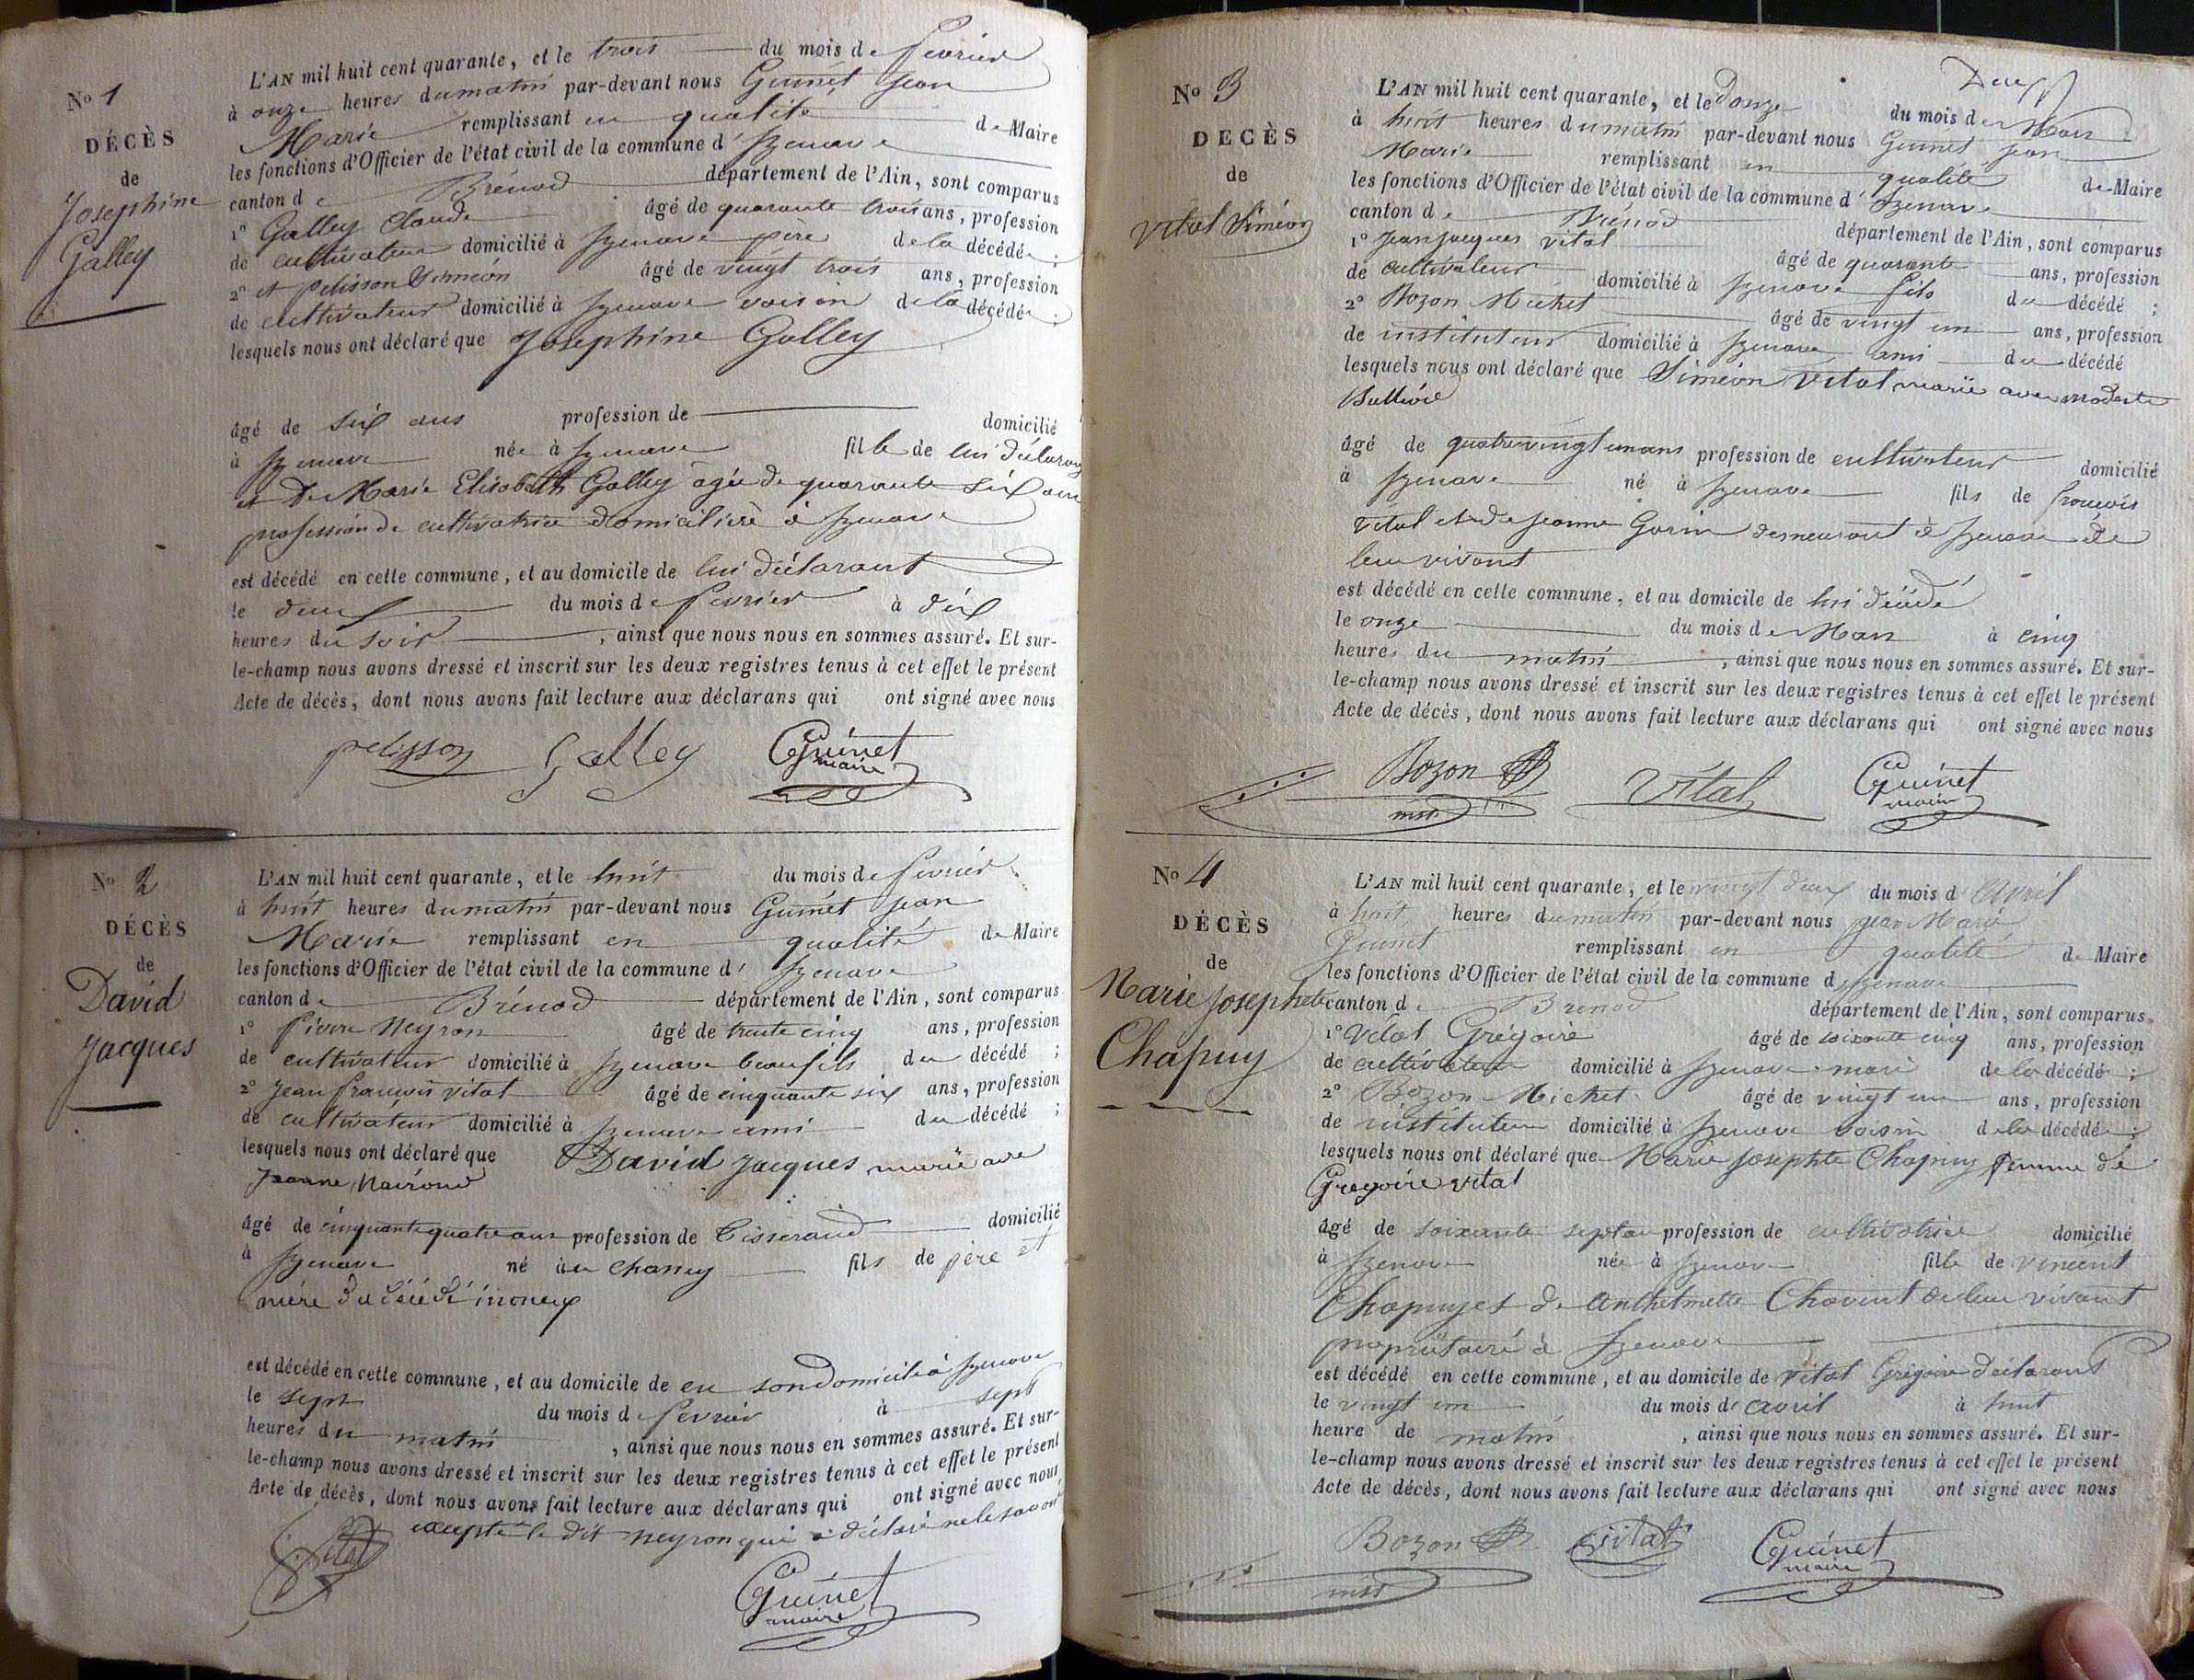 No 1
DÉCÈS
de
Josephine
Galley
L'AN mil huit cent quarante, et le trois du mois de fevrier
à onze heures du matin par-devant nous Guinet Jean
Marie remplissant en qualité de Maire
les fonctions d'Officier de l'état civil de la commune d' Izenave
canton de Brénod département de l'Ain, sont comparus
1° Galley Claude âgé de quarante trois ans, profession
de cultivateur domicilié à Izenave père de la décédée ;
2° et pelisson Siméon âgé de vingt trois ans, profession
de cultivateur domicilié à Izenave voisin de la décédée ;
lesquels nous ont déclaré que Josephine Galley
âgé de six ans profession de domicilié
à Izenave née à Izenave fille de lui déclarant
et De Marie Elisabeth Galley agée de quarante six ans
profession de cultivatrice domiciliée à Izenave
est décédé en cette commune, et au domicile de lui déclarant
le deux du mois de fevrier à dix
heures du soir , ainsi que nous nous en sommes assuré. Et sur-
le-champ nous avons dressé et inscrit sur les deux registres tenus à cet effet le présent
Acte de décès, dont nous avons fait lecture aux déclarans qui ont signé avec nous
pelisson Galley Guinet
maire
No 2
DÉCÈS
de
David
Jacques
L'AN mil huit cent quarante, et le huit du mois de fevrier
à huit heures du matin par-devant nous Guinet Jean
Marie remplissant en qualité de Maire
les fonctions d'Officier de l'état civil de la commune d' Izenave
canton de Brénod département de l'Ain, sont comparus
1° Pierre Neyron âgé de trente cinq ans, profession
de cultivateur domicilié à Izenave beaufils du décédé ;
2° Jean francois vital âgé de cinquante six ans, profession
de cultivateur domicilié à Izenave ami du décédé ;
lesquels nous ont déclaré que David Jacques marié avec
Jeanne
âgé de cinquante quatre ans profession de Tisserand domicilié
à Izenave né au fils de père et
mère du décédé
est décédé en cette commune, et au domicile de en son domicile à Izenave
le sept du mois de fevrier à sept
heures du matin , ainsi que nous nous en sommes assuré. Et sur-
le-champ nous avons dressé et inscrit sur les deux registres tenus à cet effet le présent
Acte de décès, dont nous avons fait lecture aux déclarans qui ont signé avec nous
excepté le dit neyron qui a déclaré ne le savoir
Vital
Guinet
maire
No 3
DECÈS
de
Vital Siméon
Deux
L'AN mil huit cent quarante, et le douze du mois de Mars
à huit heures du matin par-devant nous Guinet Jean
Marie remplissant en qualité de Maire
les fonctions d'Officier de l'état civil de la commune d' Izenave
canton de Brénod département de l'Ain, sont comparus
1° Jean Jacques vital âgé de quarante ans, profession
de cultivateur domicilié à Izenave fils du décédé ;
2° Bozon Michel âgé de vingt un ans, profession
de instituteur domicilié à Izenave ami du décédé
lesquels nous ont déclaré que Siméon Vital marié avec modeste
âgé de quatrevingt un ans profession de cultivateur domicilié
à Izenave né à Izenave fils de francois
Vital et de Jeanne Gorin demeurant à Izenave de
leur vivant
est décédé en cette commune, et au domicile de lui décédé
le onze du mois de Mars à cinq
heures du matin , ainsi que nous nous en sommes assuré. Et sur-
le-champ nous avons dressé et inscrit sur les deux registres tenus à cet effet le présent
Acte de décès, dont nous avons fait lecture aux déclarans qui ont signé avec nous
Bozon Vital Guinet
inst. maire
No 4
DÉCÈS
de
Marie Josephte
Chapuy
L'AN mil huit cent quarante, et le vingt deux du mois d Avril
à huit heures du matin par-devant nous Jean Marie
Guinet remplissant en qualité de Maire
les fonctions d'Officier de l'état civil de la commune d Izenave
canton de Brenod département de l'Ain, sont comparus
1° Vital Grégoire âgé de soixante cinq ans, profession
de cultivateur domicilié à Izenave mari de la décédée ;
2° Bozon Michel âgé de vingt un ans, profession
de instituteur domicilié à Izenave voisin de la décédée ;
lesquels nous ont déclaré que Marie Josephte Chapuy femme de
Gregoire vital
âgé de soixante sept an profession de cultivatrice domicilié
à Izenave née à Izenave fille de vincent
Chapuy et de Anthelmette Chavent de leur vivant
propriétaire à Izenave
est décédé en cette commune, et au domicile de Vital Grégoire déclarant
le vingt un du mois de avril à huit
heure de matin , ainsi que nous nous en sommes assuré. Et sur-
le-champ nous avons dressé et inscrit sur les deux registres tenus à cet effet le présent
Acte de décès, dont nous avons fait lecture aux déclarans qui ont signé avec nous
Bozon Vital Guinet
inst maire